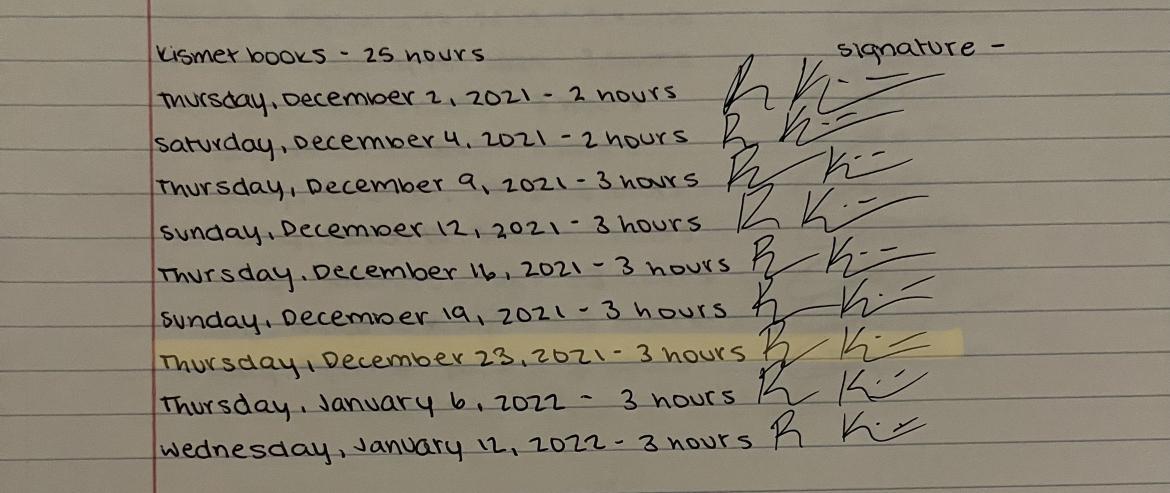 Kismet books - 25 hours signature -
Thursday, December 2, 2021 - 2 hours
Saturday, December 4, 2021 - 2 hours
Thursday, December 9, 2021 - 3 hours
Sunday, December 12, 2021 - 3 hours
Thursday, December 16, 2021 - 3 hours
Sunday, December 19, 2021 - 3 hours
Thursday, December 23, 2021 - 3 hours
Thursday, January 6, 2022 - 3 hours
Wednesday, January 12, 2022 - 3 hours